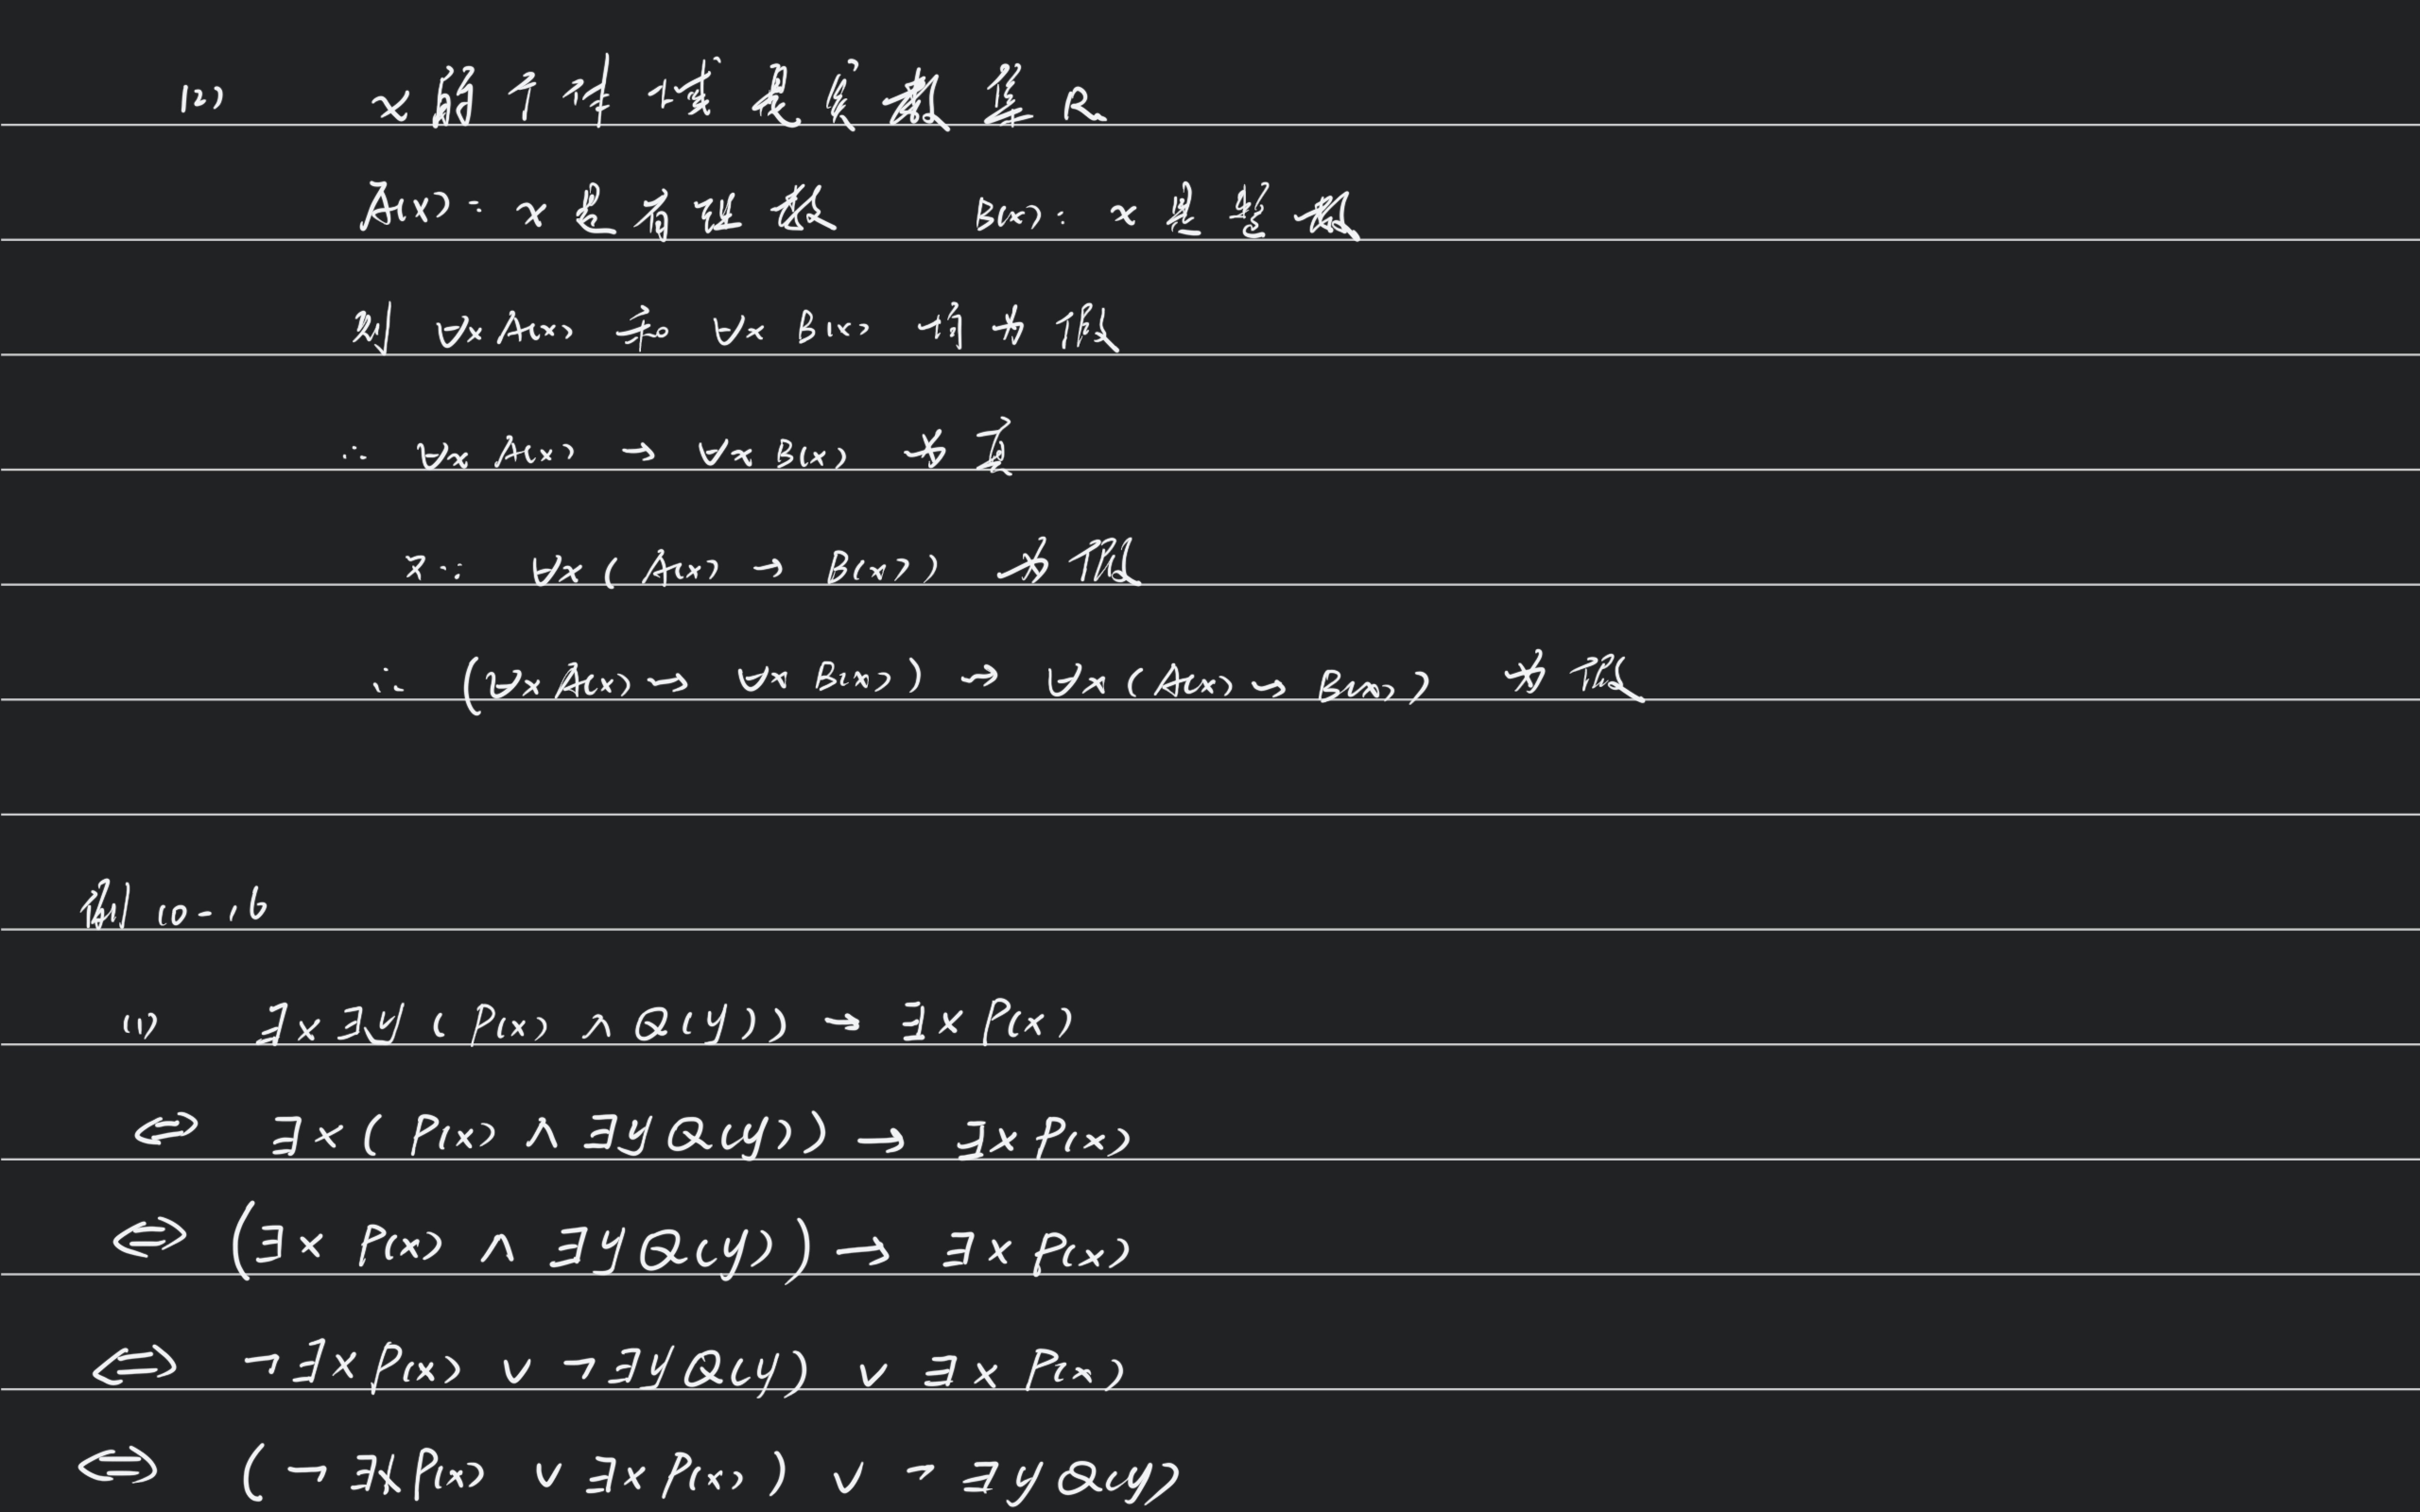 (2) x的个体域是实数集R
A(x): x是有理数 B(x): x是整数
则 ∀x A(x) 和 ∀x B(x) 均为假
∴ ∀x A(x) → ∀x B(x) 为真
又∵ ∀x ( A(x) → B(x) ) 为假
∴ (∀x A(x) → ∀x B(x)) → ∀x (A(x) → B(x)) 为假
例10-16
(1) ∃x∃y ( P(x) ∧ Q(y)) → ∃x P(x)
⇔ ∃x ( P(x) ∧ ∃y Q(y)) → ∃x P(x)
⇔ (∃x P(x) ∧ ∃y Q(y)) → ∃x P(x)
⇔ ¬∃x P(x) ∨ ¬∃y Q(y) ∨ ∃x P(x)
⇔ (¬∃x P(x) ∨ ∃x P(x)) ∨ ¬∃y Q(y)